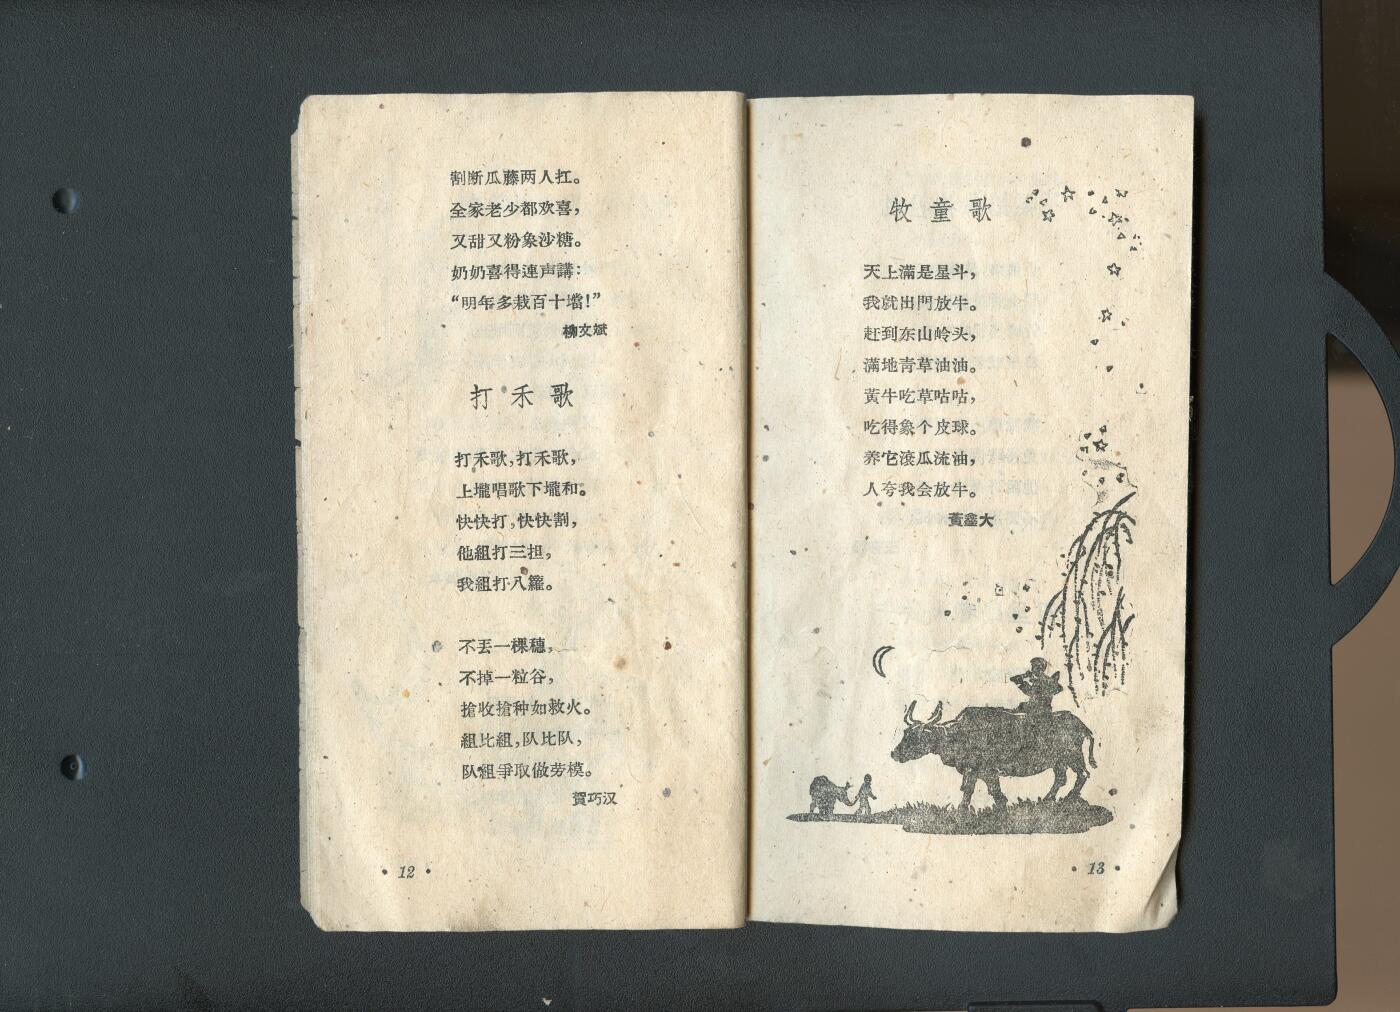 割断瓜藤两人扛。
全家老少都欢喜，
又甜又粉象沙糖。
奶奶喜得連声講：
“明年多栽百十壋！”
柳文斌
打禾歌
打禾歌，打禾歌，
上壠唱歌下壠和。
快快打，快快割，
他組打三担，
我組打八籮。
不丢一棵穗，
不掉一粒谷，
搶收搶种如救火。
組比組，队比队，
队組爭取做劳模。
賀巧汉
• 12 •
牧童歌
天上滿是星斗，
我就出門放牛。
赶到东山岭头，
满地青草油油。
黃牛吃草咕咕，
吃得象个皮球。
养它滾瓜流油，
人夸我会放牛。
黃鑫大
• 13 •